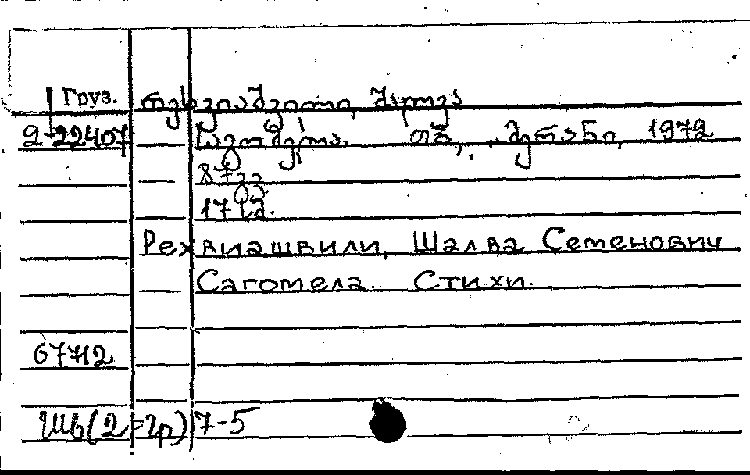 Груз. რეხვიაშვილი, შალვა
2-22407 საგომელა. თბ., „მერანი, 1972
87 გვ
17 სმ.
Рехвиашвили, Шалва Семенович
Сагомела. Стихи.
67712
Шб(2=гр)7-5